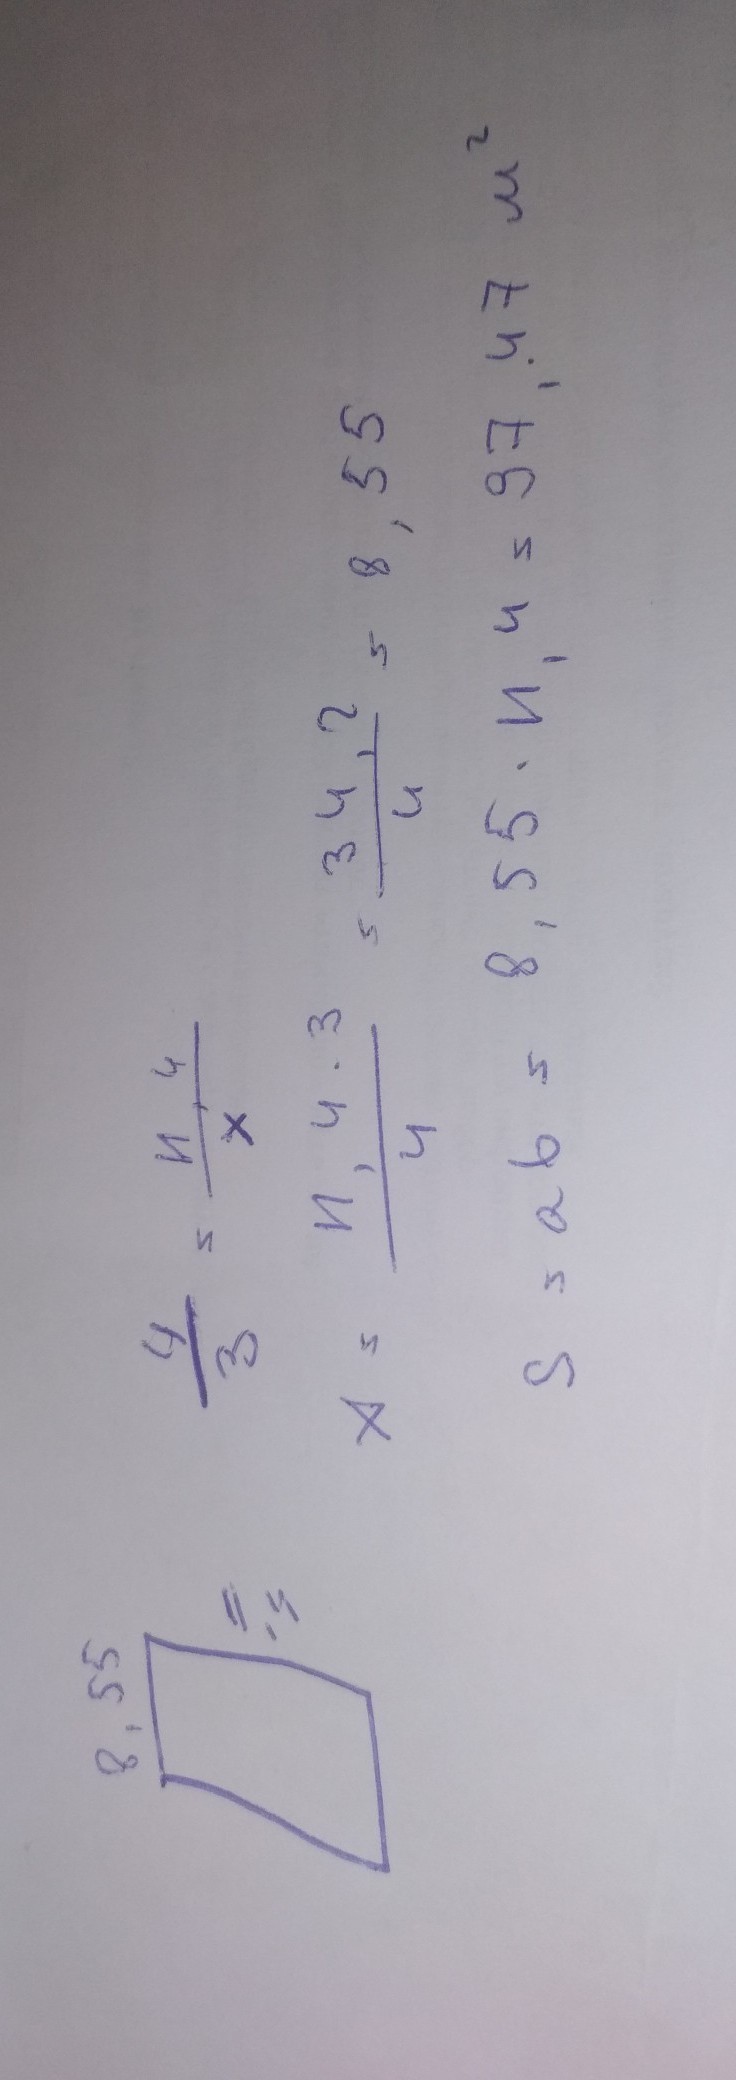 8,55
11,4
4/3 = 11,4/x
x = 11,4·3/4 = 34,2/4 = 8,55
S = ab = 8,55·11,4 = 97,47 м²